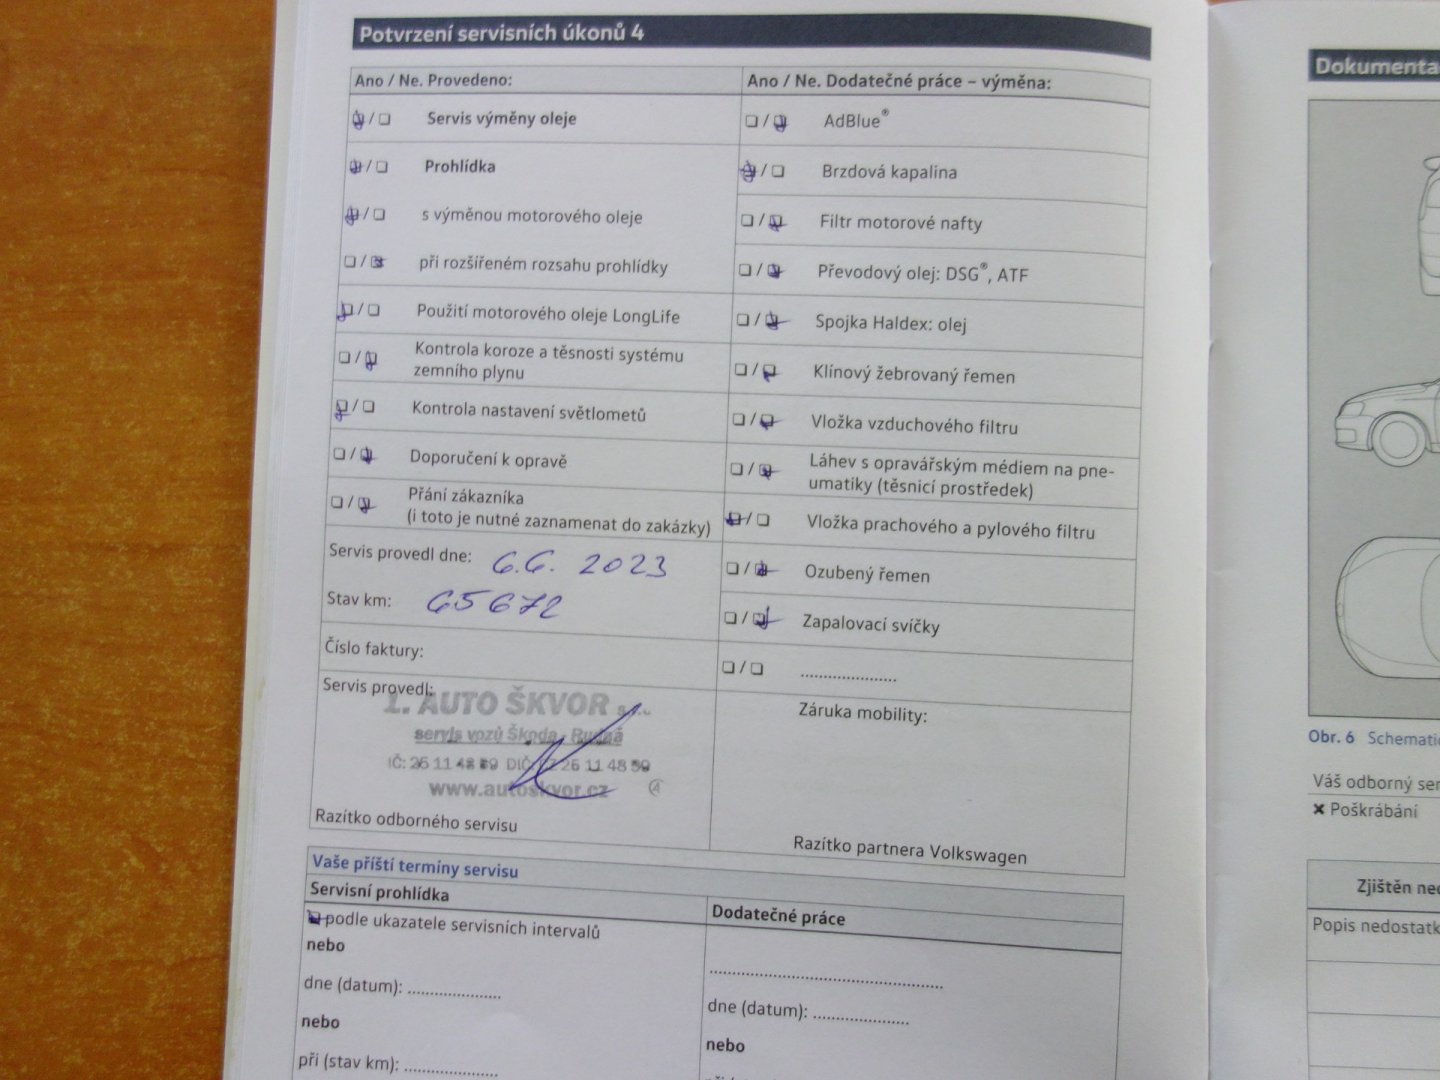 Potvrzení servisních úkonů 4
Ano / Ne. Provedeno:
/ Servis výměny oleje
/ Prohlídka
/ s výměnou motorového oleje
/ při rozšířeném rozsahu prohlídky
/ Použití motorového oleje LongLife
/ Kontrola koroze a těsnosti systému
zemního plynu
/ Kontrola nastavení světlometů
/ Doporučení k opravě
/ Přání zákazníka
(i toto je nutné zaznamenat do zakázky)
Servis provedl dne: 6.6. 2023
Stav km: 65672
Číslo faktury:
Servis provedl:
1. AUTO ŠKVOR s.r.o.
servis vozů Škoda - Rudná
IČ: 26 11 48 89 DIČ: CZ 26 11 48 89
www.autoskvor.cz
Razítko odborného servisu
Ano / Ne. Dodatečné práce – výměna:
/ AdBlue®
/ Brzdová kapalina
/ Filtr motorové nafty
/ Převodový olej: DSG®, ATF
/ Spojka Haldex: olej
/ Klínový žebrovaný řemen
/ Vložka vzduchového filtru
/ Láhev s opravářským médiem na pne-
umatiky (těsnicí prostředek)
/ Vložka prachového a pylového filtru
/ Ozubený řemen
/ Zapalovací svíčky
/ .....................
Záruka mobility:
Razítko partnera Volkswagen
Vaše příští termíny servisu
Servisní prohlídka
podle ukazatele servisních intervalů
nebo
dne (datum): .....................
nebo
při (stav km): .....................
Dodatečné práce
.....................................................
dne (datum): .....................
nebo
Dokumenta
Obr. 6 Schematic
Váš odborný ser
✖ Poškrábání
Zjištěn ned
Popis nedostatk